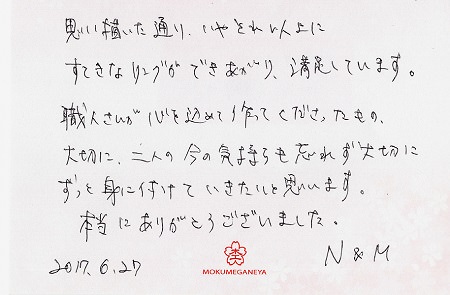 思い描いた通り、いやそれ以上に
すてきなリングができあがり、満足しています。
職人さんが心を込めて作ってくださったもの、
大切に、二人の今の気持ちも忘れず大切に
ずっと身に付けていきたいと思います。
本当にありがとうございました。
2017.6.27
N & M
MOKUMEGANEYA